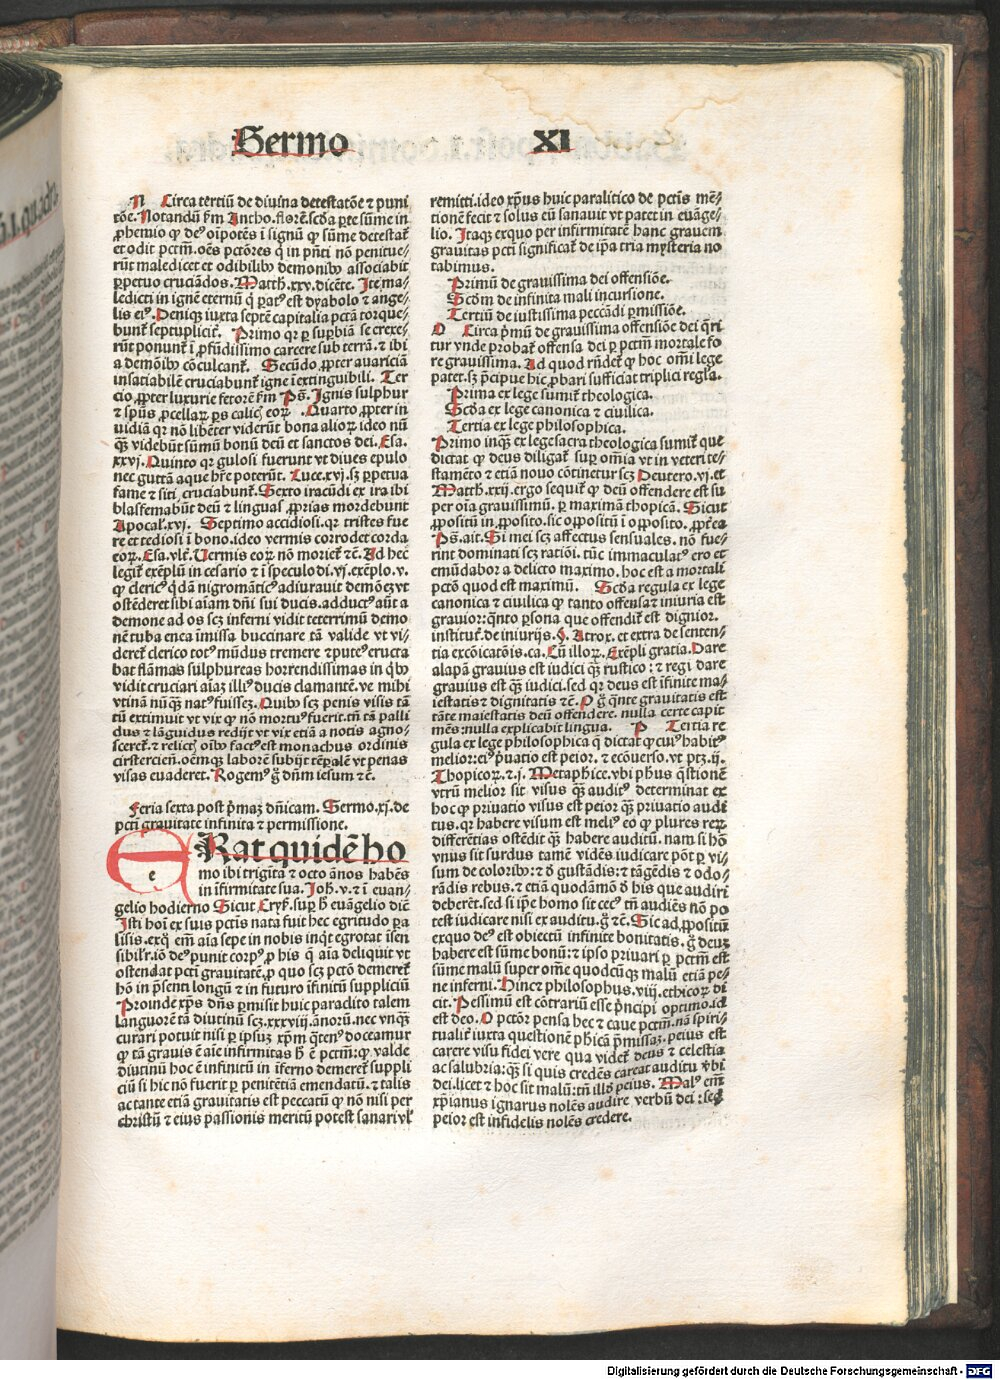 Sermo XI
N Circa tertiū de diuina detestatōe ⁊ puni
tōe. Notandū ẜm Antho. florē. scďa ꝑte sūme in
ꝓhemio ꝙ deꝰ oīpotēs ī signū ꝙ sūme detestat̄
et odit pctm̄. oēs pctōres q̄ in pn̄ti nō penitue⸗
rūt maledicet et odibilibꝫ demonibꝫ associabit
ꝑpetuo cruciādos. Matth. xxv. dicēte. Ite ma⸗
ledicti in ignē eternū q̄ ꝑatꝰ est dyabolo ⁊ ange⸗
lis eiꝰ. Deniqꝫ iuxta septē capitalia pctā torque⸗
bunt̄ septuplicit̄. Primo qꝛ ꝑ suꝑbiā se erexe⸗
rūt ponunt̄ ī ꝓfūdissimo carcere sub terrā. ⁊ ibi
a demōibꝫ cōculcant̄. Secūdo ꝓpter auariciā
insaciabilē cruciabunt̄ igne īextinguibili. Ter
cio ꝓpter luxurie fetorē ẜm Ps̄. Ignis sulphur
⁊ spūs ꝓcellaꝝ ꝑs calicꝭ eoꝝ. Quarto ꝓpter in
uidiā qꝛ nō libēter viderūt bona alioꝝ ideo nū
qꝫ videbūt sūmū bonū deū et sanctos dei. Esa.
xxvj. Quinto qꝛ gulosi fuerunt vt diues epulo
nec guttā aque hr̄e poterūt. Luce. xvj. sꝫ ꝑpetua
fame ⁊ siti cruciabunt̄. Sexto iracūdi ex ira ibi
blasfemabūt deū ⁊ linguas ꝓprias mordebunt
Apocal̄. xvj. Septimo accidiosi. qꝛ tristes fue
re et tediosi ī bono. ideo vermis corrodet corda
eoꝝ. Esa. vlt̄. Uermis eoꝝ nō moriet̄ ⁊c̄. Ad hec
legit̄ exēplū in cesario ⁊ ī speculo di. vj. exēplo. v.
ꝙ clericꝰ qdā nigromāticꝰ adiurauit demōeꝫ vt
ostēderet sibi aīam dn̄i sui ducis. adductꝰ aūt a
demone ad os scꝫ inferni vidit teterrimū demo
nē tuba enea īmissa buccinare tā valide vt vi⸗
deret̄ clerico totꝰ mūdus tremere ⁊ puteꝰ eructa
bat flāmas sulphureas horrendissimas in qbꝫ
vidit cruciari aīaꝫ illiꝰ ducis clamantē. ve mihi
vtinā nūqꝫ natꝰ fuisseꝫ. Quibꝫ scꝫ penis visis tā
tū extimuit vt vix ꝙ nō mortuꝰ fuerit. tn̄ tā palli
dus ⁊ lāguidus redijt vt vix etiā a notis agno⸗
sceret̄. ⁊ relictꝭ oībꝫ factꝰ est monachus ordinis
cisterciēn̄. oēmqꝫ laborē subijt tēꝑalē vt penas
visas euaderet. Rogemꝰ g̊ dn̄m iesum ⁊c̄.
Feria sexta post p̄maꝫ dn̄icam. Sermo. xj. de
pcti grauitate infinita ⁊ permissione.
e Rat quidē ho
mo ibi trigīta ⁊ octo ānos habēs
in īfirmitate sua. Joh. v. ⁊ ī euan⸗
gelio hodierno Sicut Crys̄. suꝑ h̄ euāgelio diē
Isti hoī ex suis pctis nata fuit hec egritudo ꝑa
lisis. ex q̄ em̄ aīa sepe in nobis inqͥt egrotat īsen
sibil̄r. iō deꝰ punit corpꝰ, ꝓ his q̄ aīa deliquit vt
ostendat pcti grauitatē, ꝓ quo scꝫ pctō demeret̄
hō in p̄senti longū ⁊ in futuro īfinitū suppliciū
Proinde xp̄s dn̄s ꝑmisit huic paradito talem
languorē tā diutinū scꝫ. xxxviij. ānorū. nec vnqꝫ
curari potuit nisi ꝑ ipsuꝫ xp̄m qͣtenꝰ doceamur
ꝙ tā grauis ē aīe infirmitas h̄ ē pctm̄: ꝙ valde
diutinū hoc ē infinitū in īferno demeret̄ suppli
ciū si hic nō fuerit ꝑ penitētiā emendatū. ⁊ talis
ac tante etiā grauitatis est peccatū ꝙ nō nisi per
christū ⁊ eius passionis meritū potest sanari vl̄
remitti. ideo xp̄us huic paralitico de pctis mē⸗
tionē fecit ⁊ solus eū sanauit vt patet in euāge⸗
lio. Itaqꝫ ex quo per infirmitatē hanc grauem
grauitas pcti significat̄ de ipa tria mysteria no
tabimus.
Primū de grauissima dei offensiōe.
Scďm de infinita mali incursione.
Tertiū de iustissima peccādi ꝑmissiōe.
O Circa p̄mū de grauissima offensiōe dei q̄ri
tur vnde probat̄ offensa dei ꝑ pctm̄ mortale fo
re grauissima. Ad quod rn̄det̄ ꝙ hoc omī lege
patet. sꝫ p̄cipue hic ꝓbari sufficiat triplici regl̄a.
Prima ex lege sumit̄ theologica.
Scďa ex lege canonica ⁊ ciuilica.
Tertia ex lege philosophica.
Primo inqꝫ ex lege sacra theologica sumit̄ que
dictat ꝙ deus diligat̄ suꝑ omīa vt in veteri te⸗
stamēto ⁊ etiā nouo cōtinetur scꝫ Deutero. vj. et
Matth. xxij. ergo sequit̄ ꝙ deū offendere est su
per oīa grauissimū. ꝑ maximā thopicā. Sicut
ꝓpositū in ꝓposito. sic oppositū ī opposito. ꝓpt̄ea
Ps̄. ait. Si mei scꝫ affectus sensuales. nō fue⸗
rint dominati scꝫ ratiōi. tūc immaculatꝰ ero et
emūdabor a delicto maximo. hoc est a mortali
pctō quod est maximū. Scďa regula ex lege
canonica ⁊ ciuilica ꝙ tanto offensa ⁊ iniuria est
grauior: qͣnto ꝑsona que offendit̄ est dignior.
institut̄. de iniurijs. §. Atrox. et extra de senten⸗
tia excōicatōis. ca. Cū illoꝝ. Exēpli gratia. Dare
alapā grauius est iudici qꝫ rustico: ⁊ regi dare
grauius est qꝫ iudici. sed qꝛ deus est īfinite ma⸗
iestatis ⁊ dignitatis ⁊c̄. O g̊ qͣnte grauitatis est
tāte maiestatis deū offendere. nulla certe capit
mēs: nulla explicabit lingua. P Tertia re
gula ex lege philosophica q̄ dictat ꝙ cuiꝰ habitꝰ
melior: eiꝰ p̄uatio est peior. ⁊ ecōuerso. vt ptꝫ. ij.
Thopicoꝝ. ⁊. j. Metaphice. vbi ph̄us q̄stionē
vtrū melior sit visus qꝫ auditꝰ determinat ex
hoc ꝙ priuatio visus est peior qꝫ priuatio audi
tus. qꝛ habere visum est meliꝰ eo ꝙ plures reꝝ
differētias ostēdit qꝫ habere auditū. nam si hō
vnus sit surdus tamē vidēs iudicare pōt ꝑ vi⸗
sum de coloribꝫ: ⁊ ō gustādis: ⁊ tāgēdis ⁊ odo⸗
rādis rebus. ⁊ etiā quodāmō ō his que audiri
deberēt. sed si ip̄e homo sit cecꝰ tn̄ audiēs nō po
test iudicare nisi ex auditu. g̊ ⁊c̄. Sic ad ꝓpositū
ex quo deꝰ est obiectū infinite bonitatis. g̊ deuꝫ
habere est sūme bonū: ⁊ ipso priuari ꝑ pctm̄ est
sūme malū super om̄e quodcūqꝫ malū etiā pe⸗
ne inferni. Hinc philosophus. viij. ethicoꝝ di
cit. Pessimū est cōtrariū esse p̄ncipi optimo. id
est deo. O pctōr pensa hec ⁊ caue pctm̄. nā spiri⸗
tualit̄ iuxta questionē ph̄icā p̄missaꝫ. peius est
carere visu fidei vere qua videt̄ deus ⁊ celestia
ac salubria: qꝫ si quis credēs careat auditu v̄bi
dei. licet ⁊ hoc sit malū: tn̄ illō peius. Malꝰ em̄
xp̄ianus ignarus nolēs audire verbū dei: sed
peior est infidelis nolēs credere.
Digitalisierung gefördert durch die Deutsche Forschungsgemeinschaft - DFG